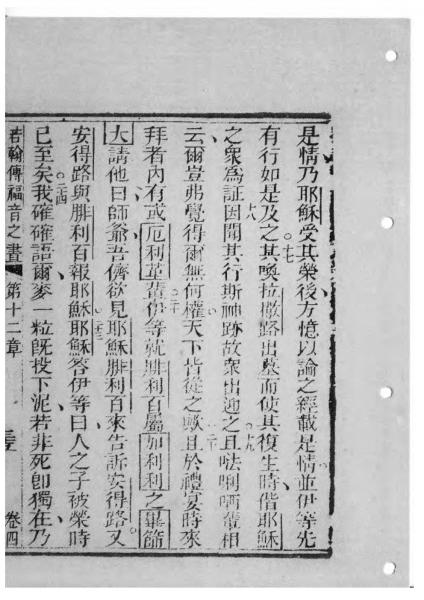 是情乃耶穌受其榮後方憶以論之經載是情並伊等先
有行如是及之十七其喚拉撒路出墓而使其復生時偕耶穌
之衆為証十八因聞其行斯神跡故衆出迎之十九且𠵽唎哂輩相
云爾豈弗覺得爾無何權天下皆從之歟二十且於禮宴時來
拜者內有或厄利革輩二十一伊等就腓利百屬加利利之畢篩
大請他曰師爺吾儕欲見耶穌二十二腓利百來告訴安得路又
安得路與腓利百報耶穌二十三耶穌答伊等曰人之子被榮時
已至矣二十四我確確語爾麥一粒旣投下泥若非死卽獨在乃
若翰傳福音之書 第十二章 卷四